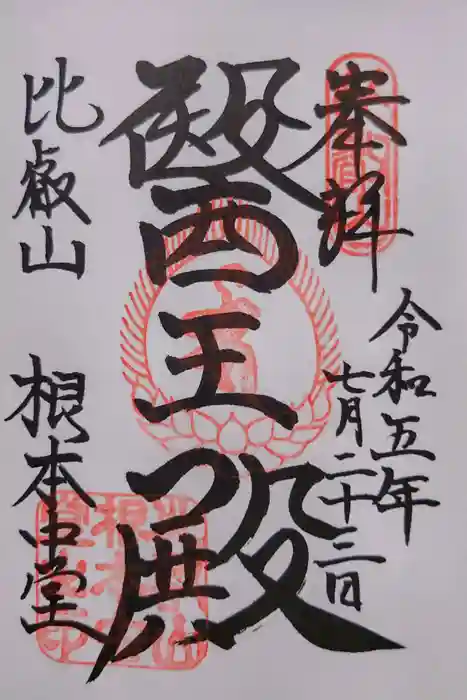 奉拝
令和五年
七月二十三日
醫王殿
比叡山 根本中堂